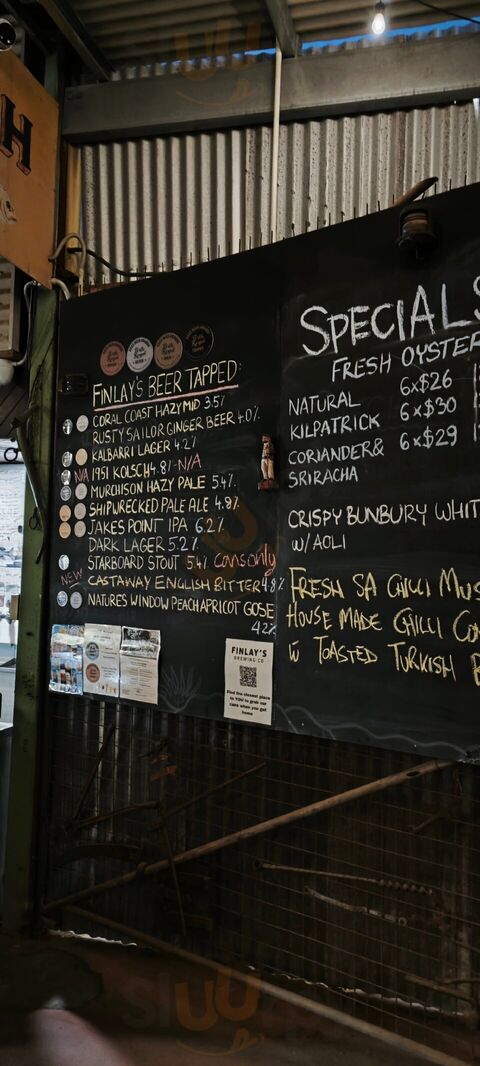 H
FINLAY'S BEER TAPPED:
CORAL COAST HAZY MID 3.5%
RUSTY SAILOR GINGER BEER 4.0%
KALBARRI LAGER 4.2%
N/A 1951 KOLSCH 4.8% N/A
MURCHISON HAZY PALE 5.4%
SHIPWRECKED PALE ALE 4.9%
JAKES POINT IPA 6.2%
DARK LAGER 5.2%
STARBOARD STOUT 5.4% cans only
NEW CASTAWAY ENGLISH BITTER 4.8%
NATURES WINDOW PEACH APRICOT GOSE
4.2%
SPECIALS
FRESH OYSTER
NATURAL 6x$26
KILPATRICK 6x$30
CORIANDER & 6x$29
SRIRACHA
CRISPY BUNBURY WHIT
W/ AOLI
FRESH SA CHILLI MUS
HOUSE MADE CHILLI CO
W TOASTED TURKISH B
FINLAY'S
BREWING CO
Find the closest place
to YOU to grab our
cans when you get
home